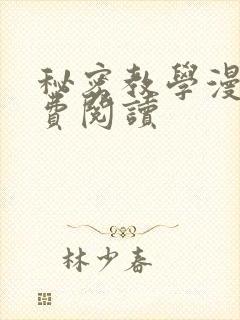 秘密教學漫
費閱讀
林少春